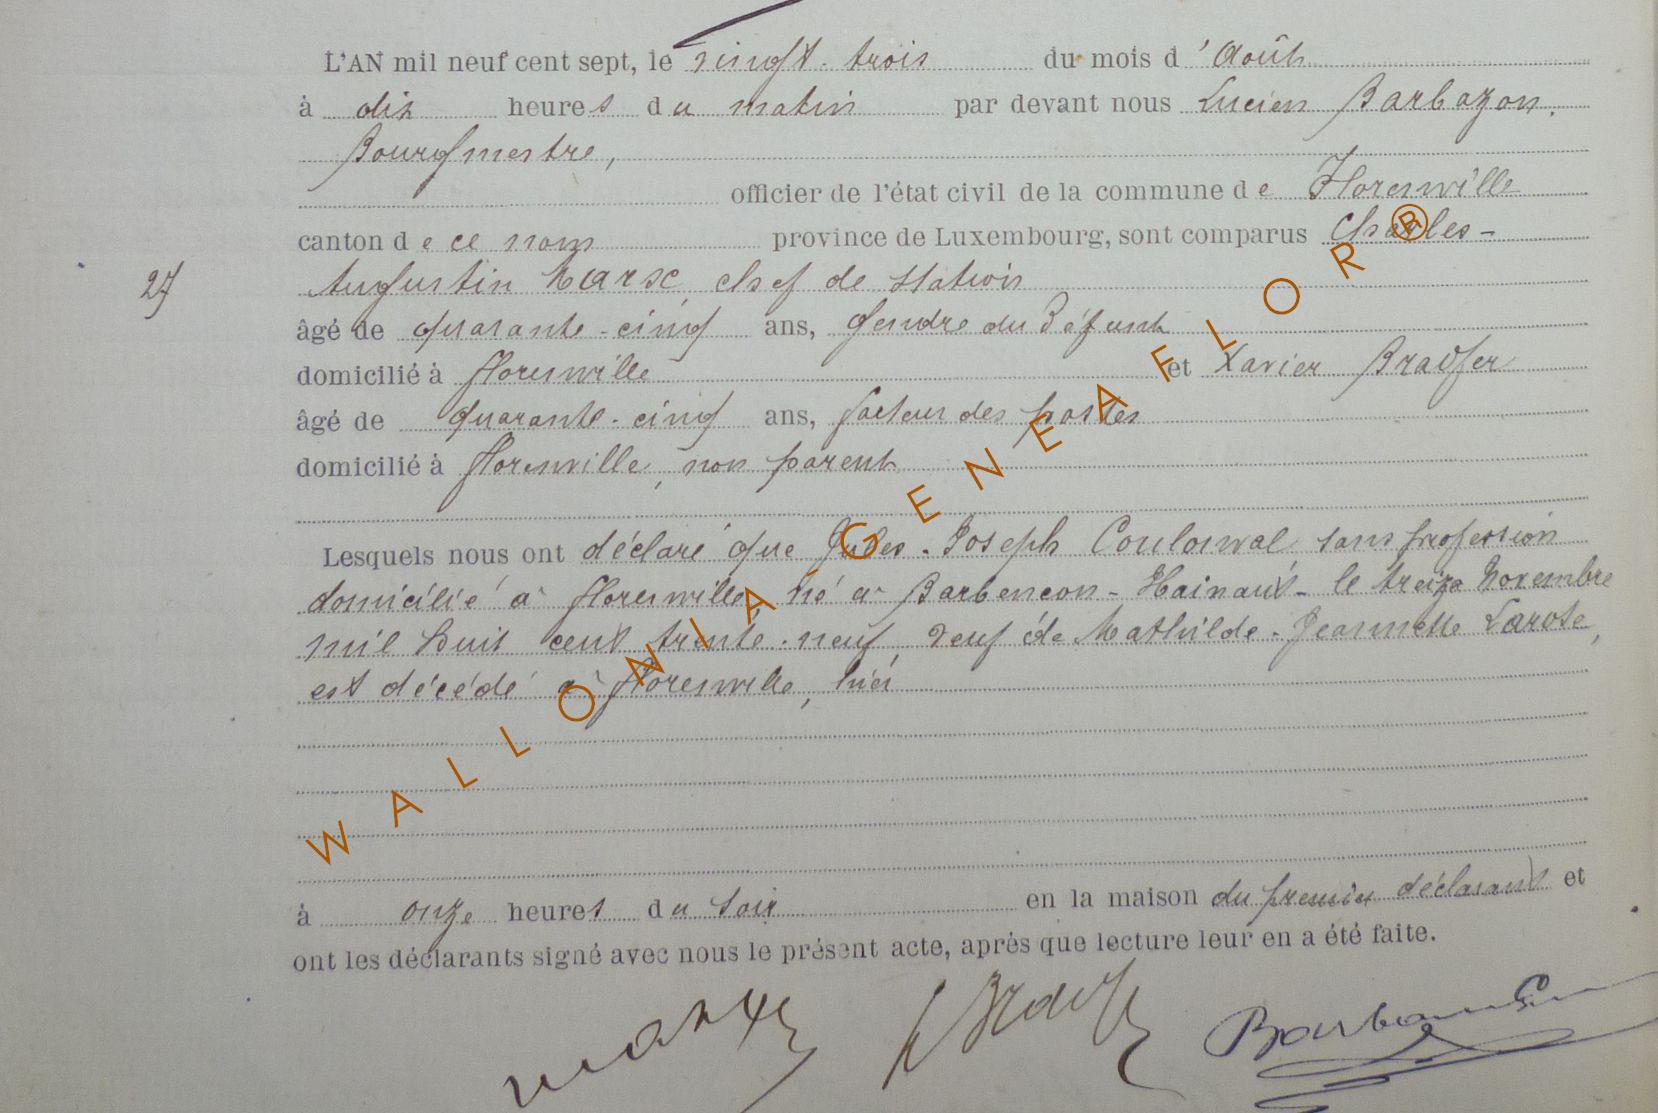 L'AN mil neuf cent sept, le vingt-trois du mois d'Août
à dix heures du matin par devant nous Lucien Barbazon,
Bourgmestre,
officier de l'état civil de la commune de Florenville
canton de ce nom province de Luxembourg, sont comparus Charles-
27 Augustin chef de station
âgé de quarante-cinq ans, gendre du défunt
domicilié à Florenville et Xavier Bradfer
âgé de quarante-cinq ans, facteur des postes
domicilié à Florenville, non parent
Lesquels nous ont déclaré que Jules-Joseph sans profession
domicilié à Florenville, né à Barbençon-Hainaut-le treize Novembre
mil huit cent trente-neuf, veuf de Mathilde-Jeannette Larose,
est décédé à Florenville, hier
à onze heures du soir en la maison du premier déclarant et
ont les déclarants signé avec nous le présent acte, après que lecture leur en a été faite.
WALLONIA GENEAFLOR®